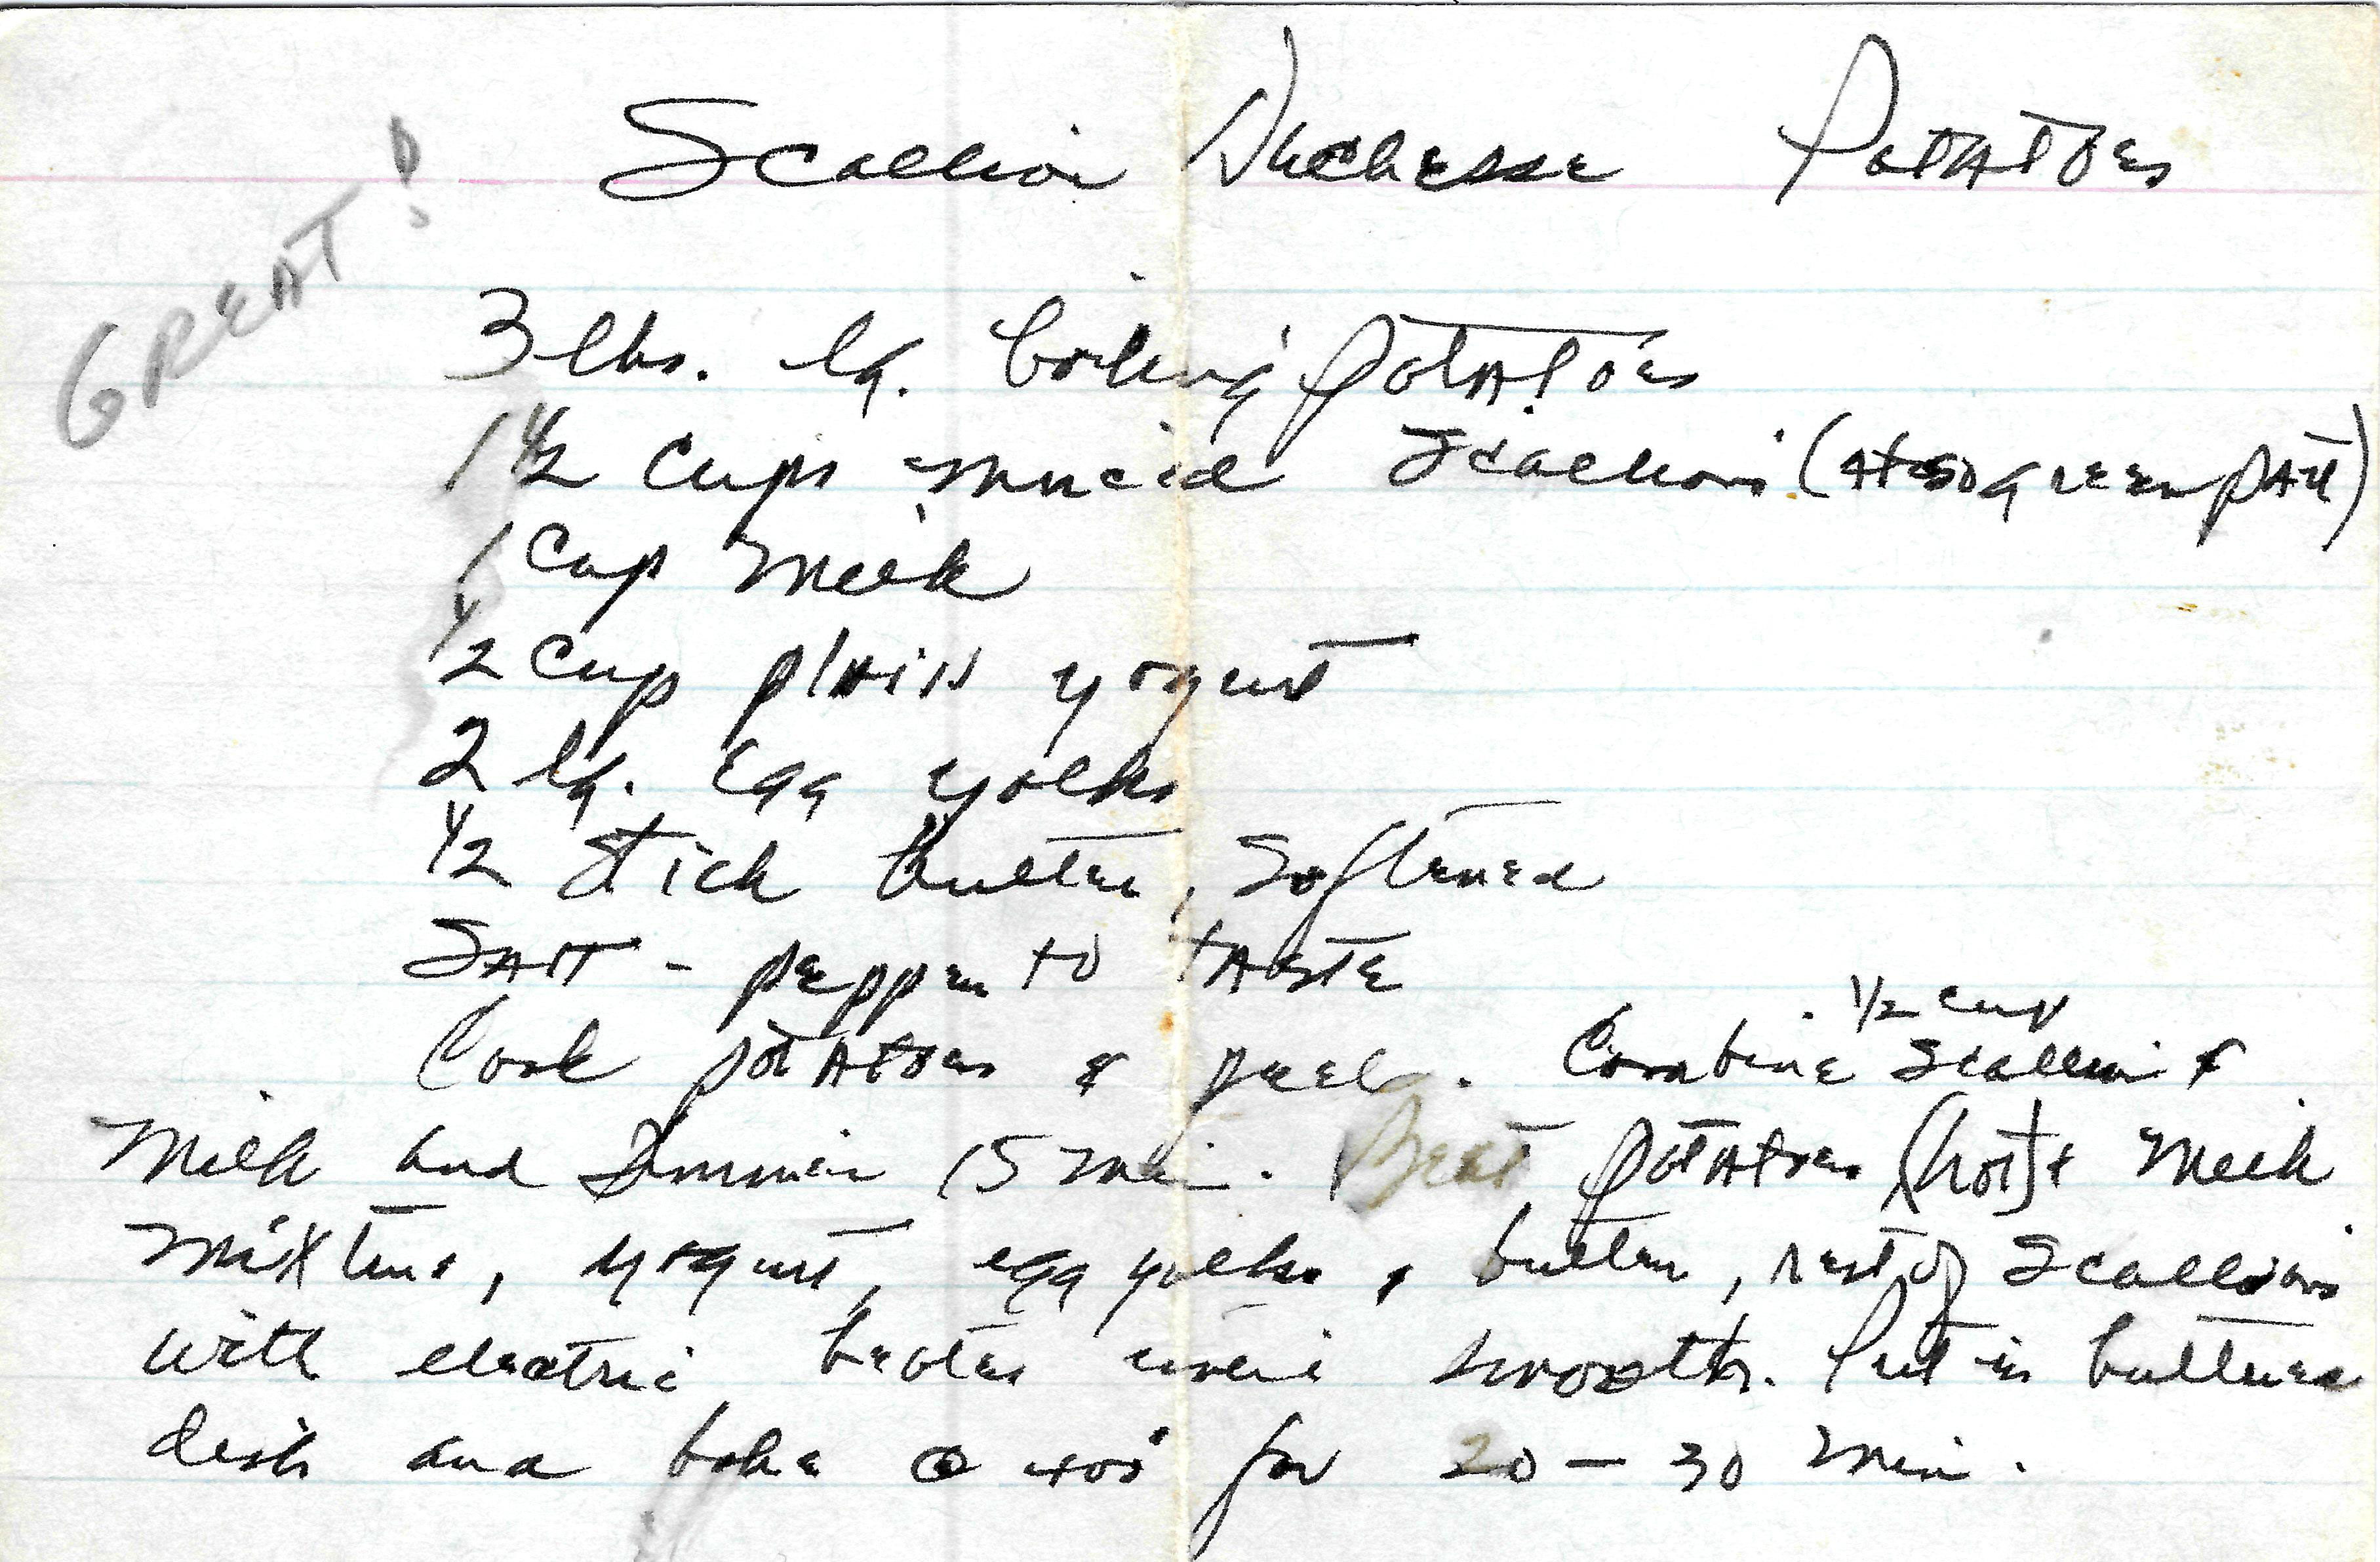 Scallion Duchesse Potatoes
GREAT!
3 lbs. lg. boiling potatoes
1 1/2 cups minced scallions (also green part)
1 cup milk
1/2 cup plain yogurt
2 lg. egg yolks
1/2 stick butter, softened
Salt - pepper to taste
Cook potatoes & peel. Combine 1/2 cup scallion &
milk and simmer 15 min. Beat potatoes (hot) & milk
mixture, yogurt, egg yolks, butter, rest of scallions
with electric beater until smooth. Put in buttered
dish and bake @ 400° for 20-30 min.